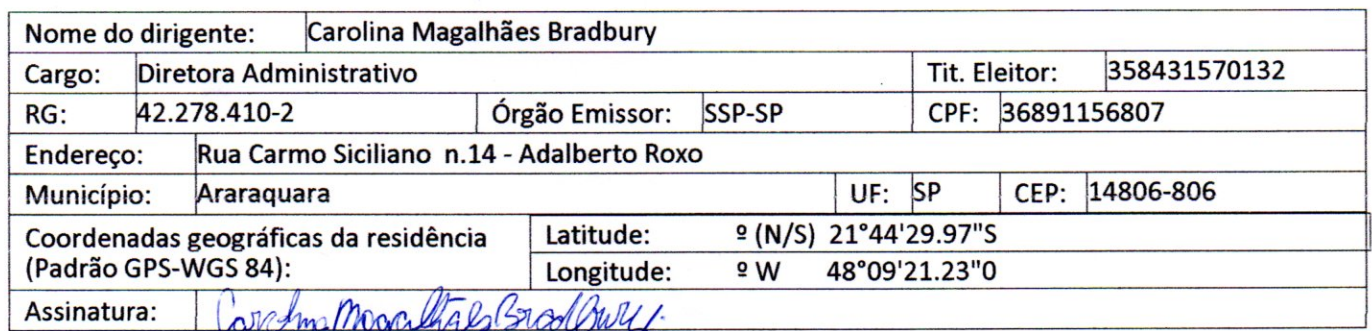 Nome do dirigente: Carolina Magalhães Bradbury
Cargo: Diretora Administrativo Tit. Eleitor: 358431570132
RG: 42.278.410-2 Órgão Emissor: SSP-SP CPF: 36891156807
Endereço: Rua Carmo Siciliano n.14 - Adalberto Roxo
Município: Araraquara UF: SP CEP: 14806-806
Coordenadas geográficas da residência
(Padrão GPS-WGS 84):
Latitude: º (N/S) 21°44'29.97"S
Longitude: º W 48°09'21.23"0
Assinatura: Carolina Magalhães Bradbury